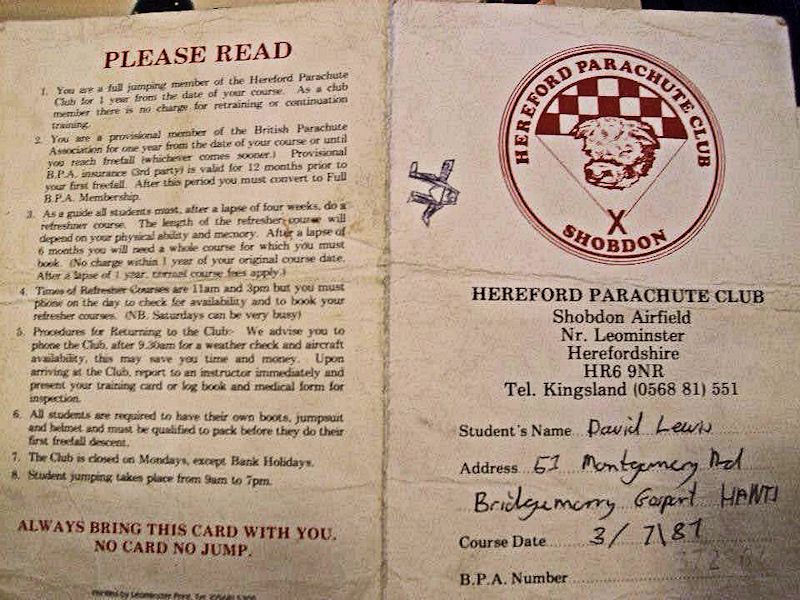 PLEASE READ
1. You are a full jumping member of the Hereford Parachute
Club for 1 year from the date of your course. As a club
member there is no charge for retraining or continuation
training.
2. You are a provisional member of the British Parachute
Association for one year from the date of your course or until
you reach freefall (whichever comes sooner.) Provisional
B.P.A. insurance (3rd party) is valid for 12 months prior to
your first freefall. After this period you must convert to Full
B.P.A. Membership.
3. As a guide all students must, after a lapse of four weeks, do a
refreshner course. The length of the refresher course will
depend on your physical ability and memory. After a lapse of
6 months you will need a whole course for which you must
book. (No charge within 1 year of your original course date.
After a lapse of 1 year, normal course fees apply.)
4. Times of Refresher Courses are 11am and 3pm but you must
phone on the day to check for availability and to book your
refresher courses. (NB. Saturdays can be very busy)
5. Procedures for Returning to the Club:- We advise you to
phone the Club, after 9.30am for a weather check and aircraft
availability, this may save you time and money. Upon
arriving at the Club, report to an instructor immediately and
present your training card or log book and medical form for
inspection.
6. All students are required to have their own boots, jumpsuit
and helmet and must be qualified to pack before they do their
first freefall descent.
7. The Club is closed on Mondays, except Bank Holidays.
8. Student jumping takes place from 9am to 7pm.
ALWAYS BRING THIS CARD WITH YOU.
NO CARD NO JUMP.
Printed by Leominster Print. Tel:
HEREFORD PARACHUTE CLUB
X
SHOBDON
HEREFORD PARACHUTE CLUB
Shobdon Airfield
Nr. Leominster
Herefordshire
HR6 9NR
Tel. Kingsland (0568 81) 551
Student's Name David Lewis
Address 61 Montgomery Rd
Bridgemary Gosport HANTS
Course Date 3/7\87
B.P.A. Number